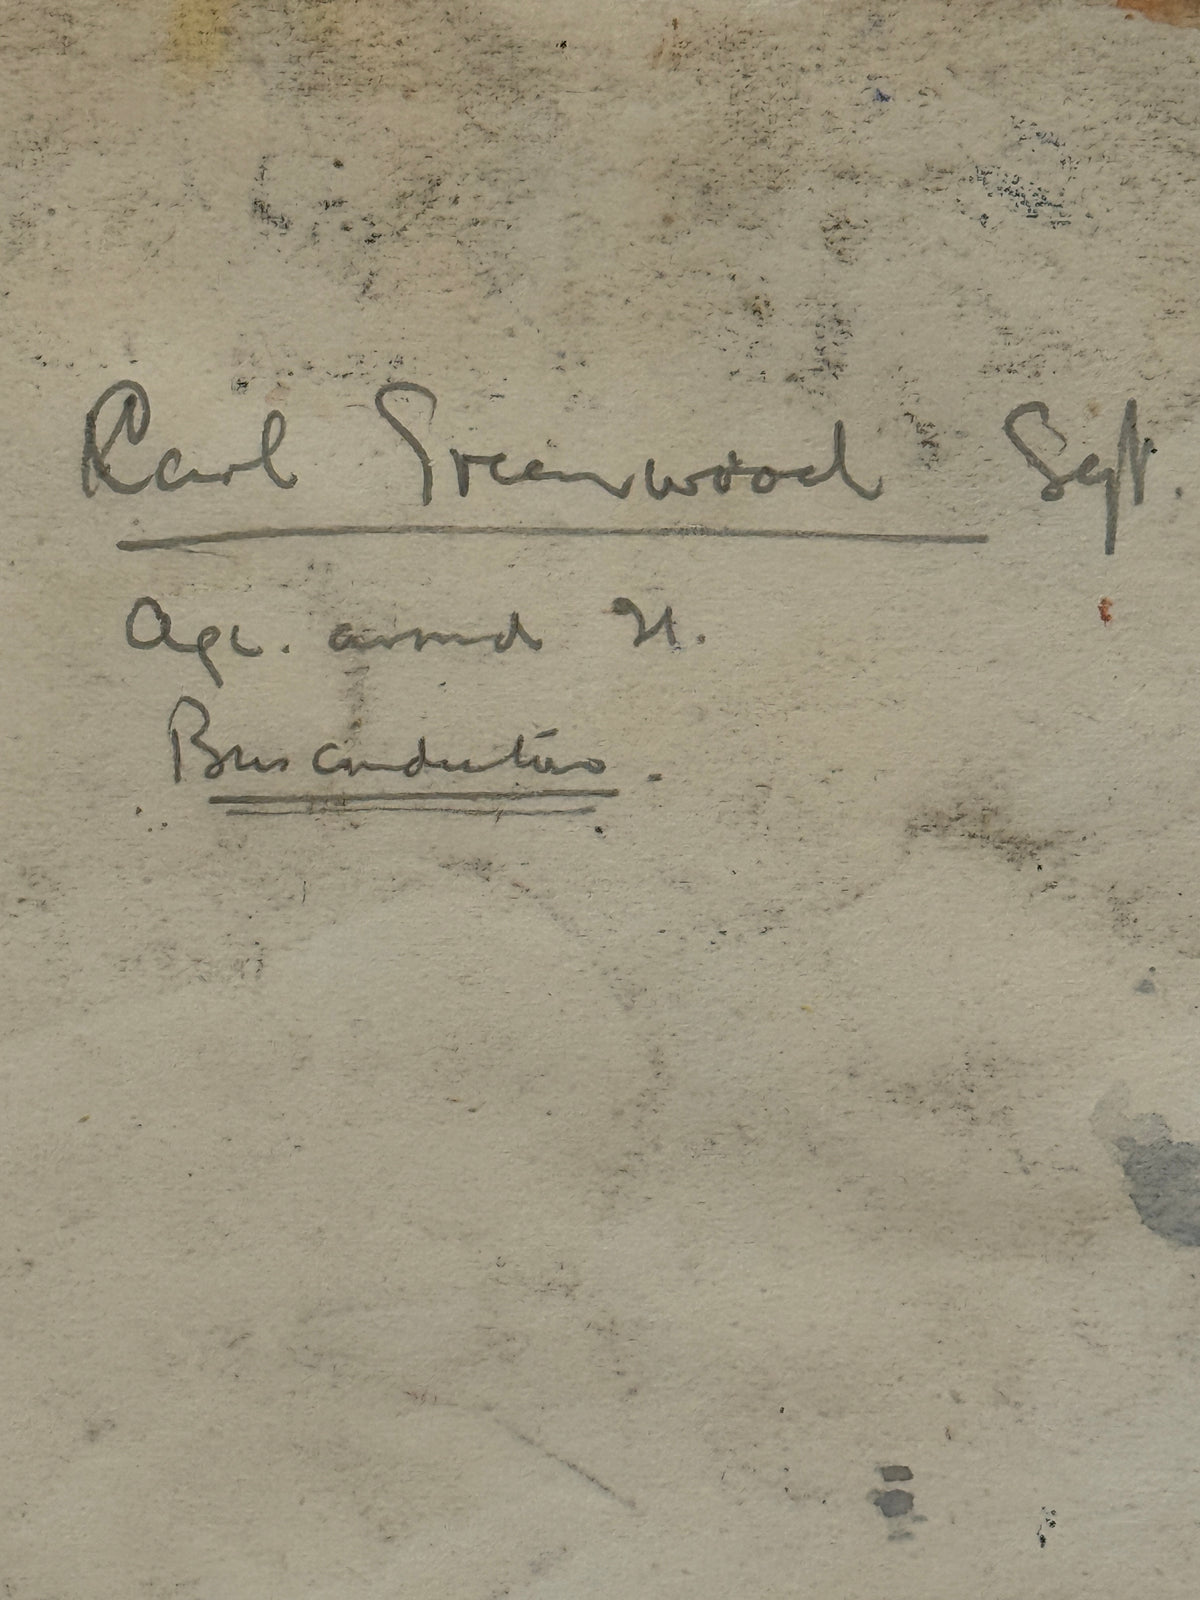 Carl Greenwood Sgt.
Age. around 21.
Bus conductor.